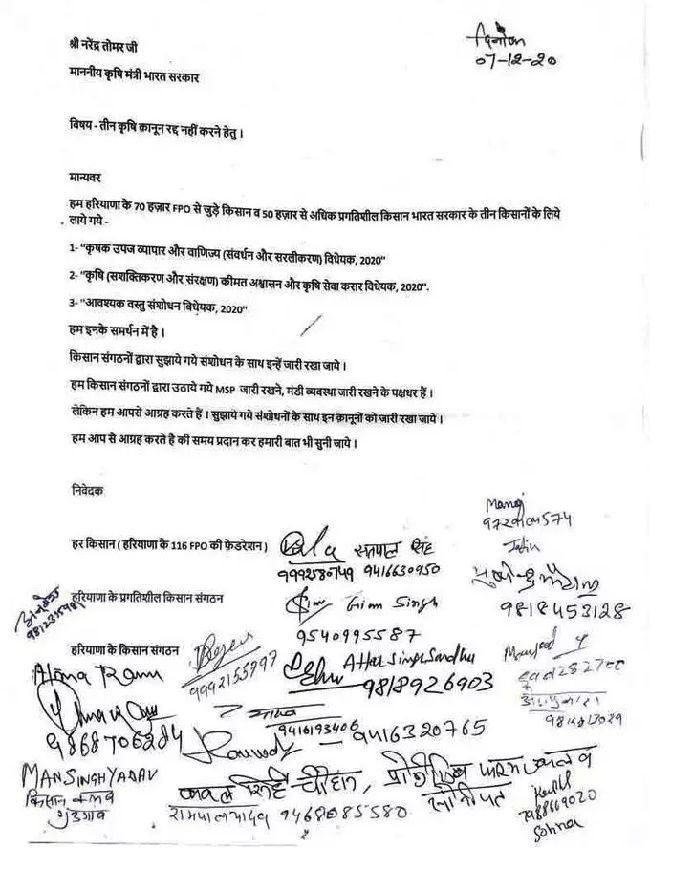 दिनांक
07-12-20
श्री नरेंद्र तोमर जी
माननीय कृषि मंत्री भारत सरकार
विषय - तीन कृषि क़ानून रद्द नहीं करने हेतु ।
मान्यवर
हम हरियाणा के 70 हज़ार FPO से जुड़े किसान व 50 हज़ार से अधिक प्रगतिशील किसान भारत सरकार के तीन किसानों के लिये
लाये गये -
1- "कृषक उपज व्यापार और वाणिज्य (संवर्धन और सरलीकरण) विधेयक, 2020"
2- "कृषि (सशक्तिकरण और संरक्षण) कीमत अश्वासन और कृषि सेवा करार विधेयक, 2020".
3- "आवश्यक वस्तु संशोधन विधेयक, 2020"
हम इनके समर्थन में है ।
किसान संगठनों द्वारा सुझाये गये संशोधन के साथ इन्हें जारी रखा जाये ।
हम किसान संगठनों द्वारा उठाये गये MSP जारी रखने, मंडी व्यवस्था जारी रखने के पक्षधर हैं ।
लेकिन हम आपसे आग्रह करते हैं । सुझाये गये संशोधनों के साथ इन क़ानूनों को जारी रखा जाये ।
हम आप से आग्रह करते है की समय प्रदान कर हमारी बात भी सुनी जाये ।
निवेदक
हर किसान ( हरियाणा के 116 FPO की फ़ेडरेशन )
सतपाल सिंह
9416630950
हरियाणा के प्रगतिशील किसान संगठन
Singh
9540995587
9818453128
हरियाणा के किसान संगठन
9992155997
Attar Singh Sandhu
9818926903
9416193406
9416320765
9868706284
MAN SINGH YADAV
किसान क्लब
गुडगाव
कवल सिंह चौहान,
सोनीपत
रामपाल यादव 9468085580
7988169020
Sohna